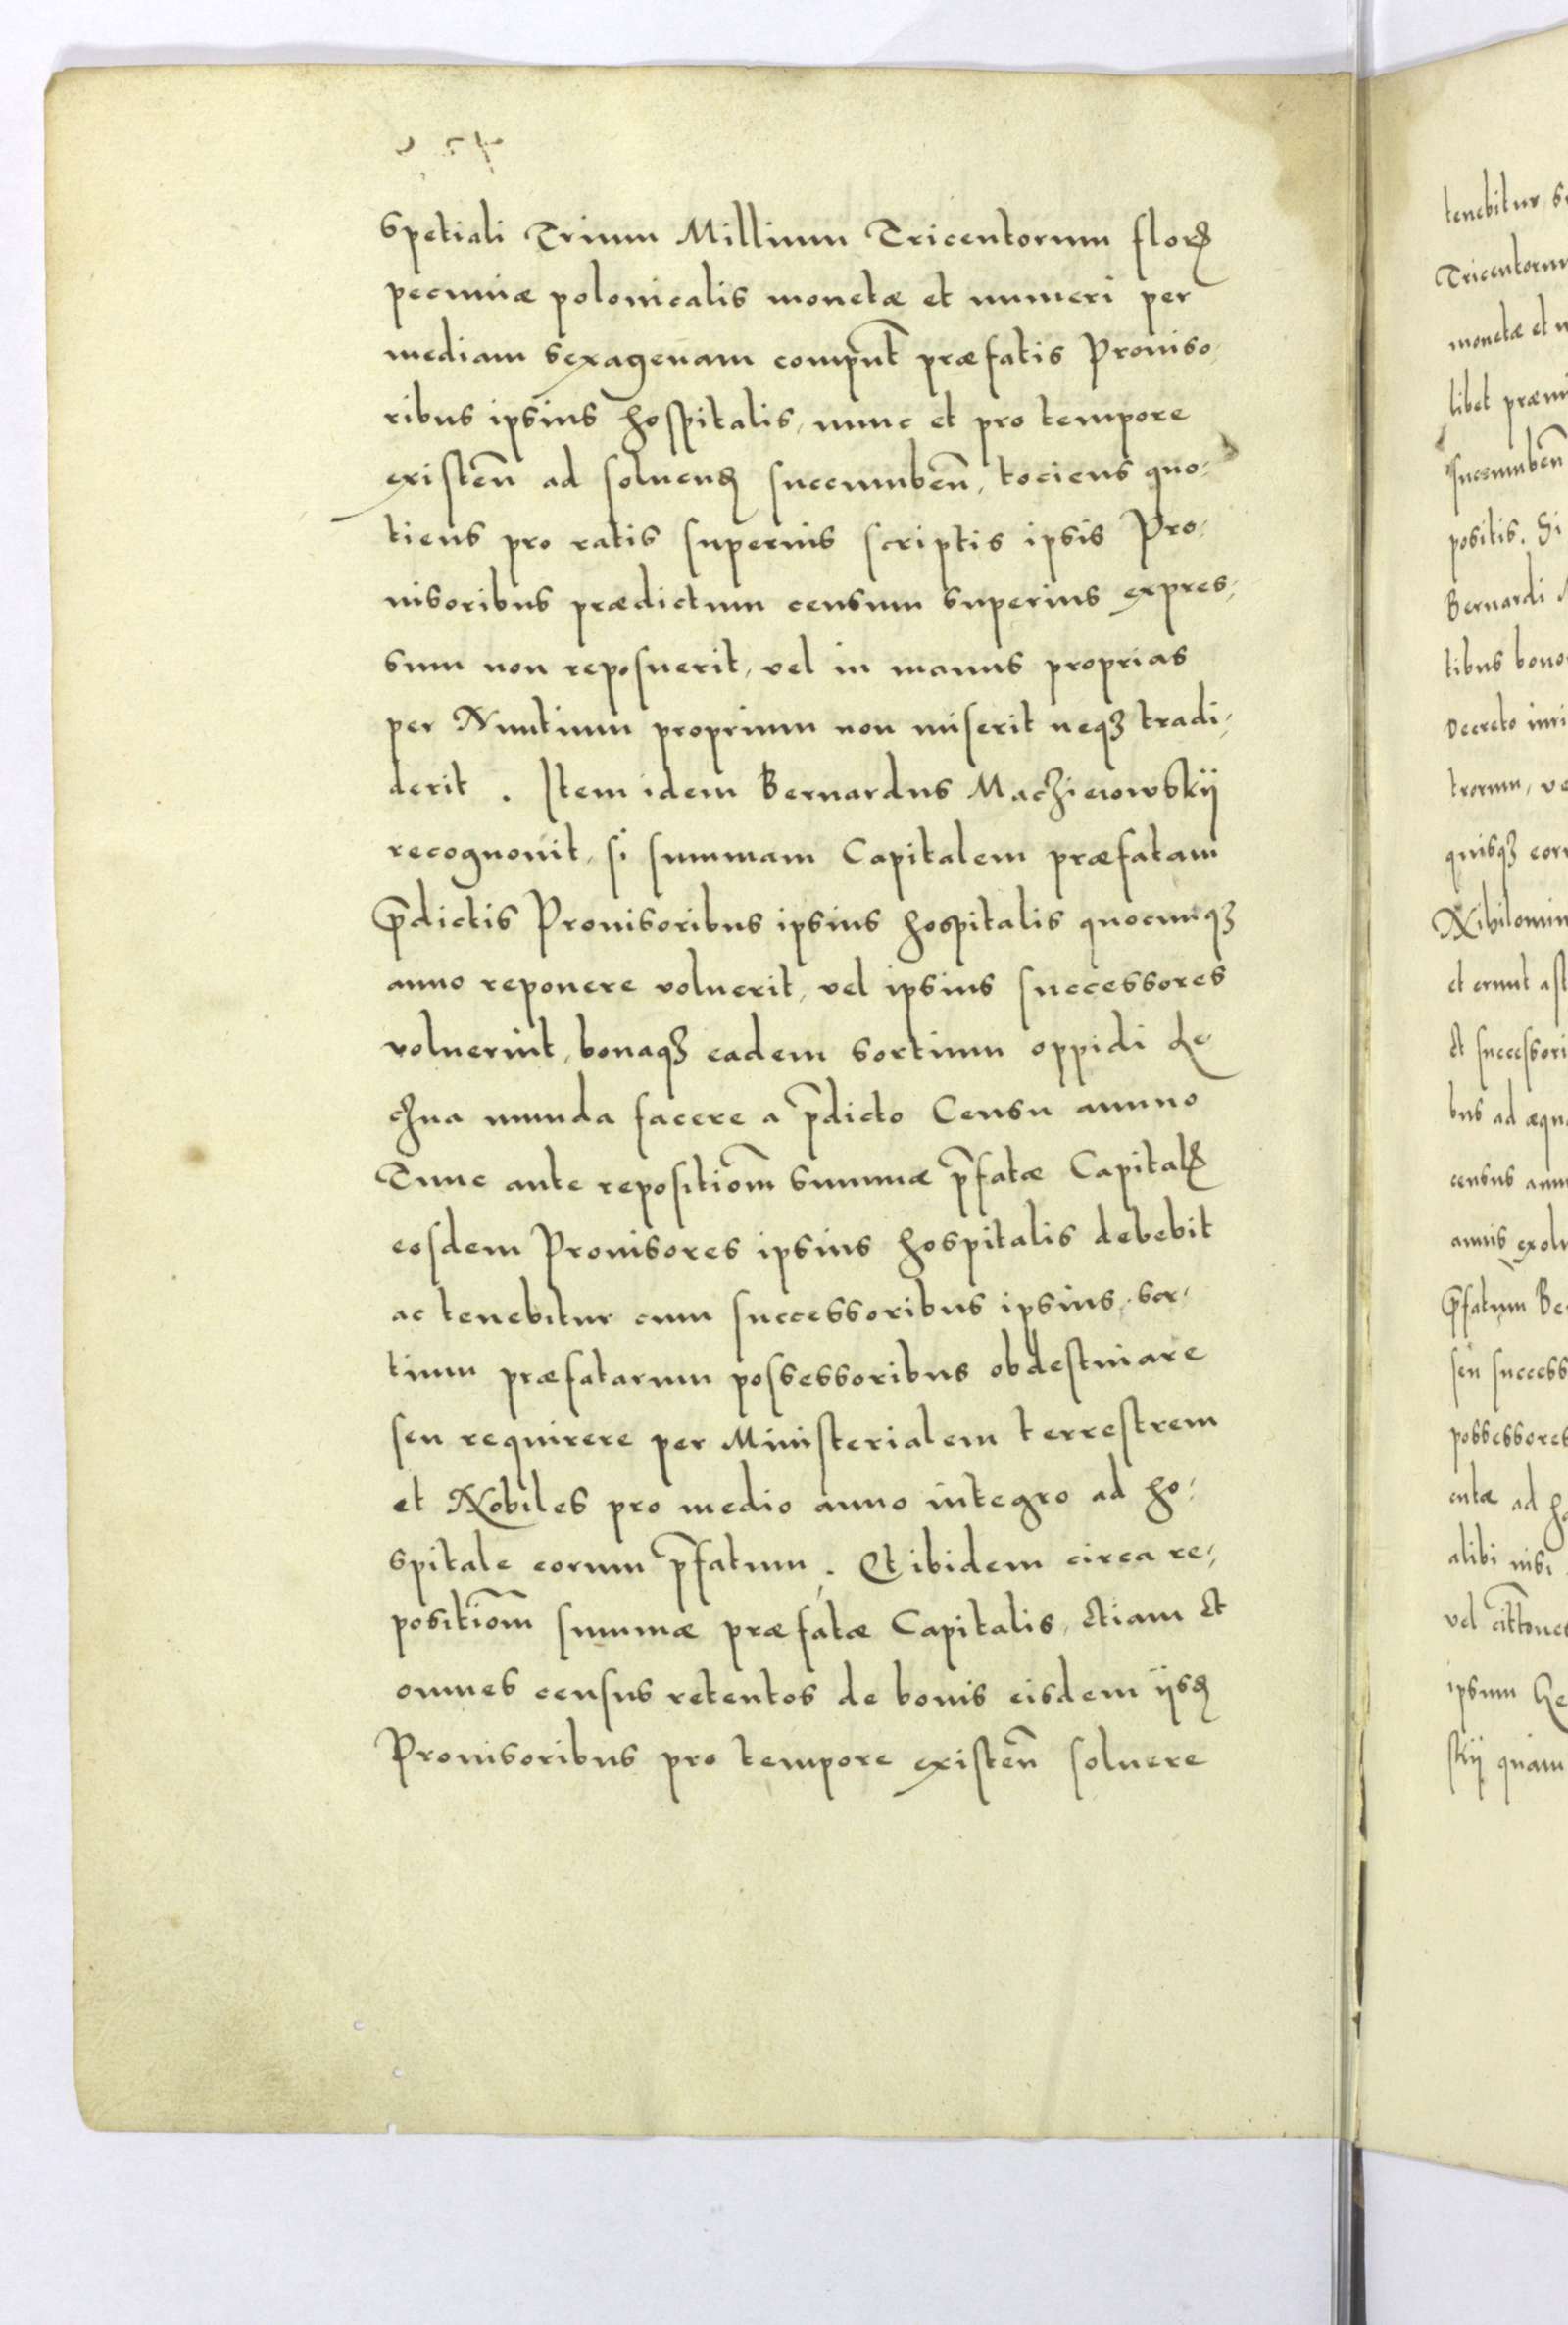 Spetiali Trium Millium Tricentorum florꝝ
pecuniæ polonicalis monetæ et numeri per
mediam sexagenam compūt præfatis Proviso-
ribus ipsius hospitalis, nunc et pro tempore
existen̄ ad soluenꝝ succumben̄, tociens quo-
tiens pro ratis superius scriptis ipsis Pro-
uisoribus prædictum censum superius expres-
sum non reposuerit, vel in manus proprias
per Nuntium proprium non miserit neqꝫ tradi-
derit. Item idem Bernardus Macziejowskij
recognouit, si summam Capitalem præfatam
p̄dictis Prouisoribus ipsius hospitalis quocunqꝫ
anno reponere voluerit, vel ipsius successores
voluerint, bonaqꝫ eadem sortium oppidi Le-
czna munda facere a p̄dicto Censu annuo
Tunc ante repositiōm summæ p̄fatæ Capitalꝭ
eosdem Prouisores ipsius hospitalis debebit
ac tenebitur cum successoribus ipsius, sor-
tium præfatarum possessoribus obdestinare
seu requirere per Ministerialem terrestrem
et Nobiles pro medio anno integro ad ho-
spitale eorum p̄fatum. Et ibidem circa re-
positiōm summæ præfatæ Capitalis, etiam et
omnes census retentos de bonis eisdem ijsꝝ
Prouisoribus pro tempore existen̄ soluere
tenebitur
Tricentorum
monetæ et
libet
succumben̄
positis. Si
Bernardi
tibus
Decreto
trorum,
quisqꝫ
et erunt
et
bus ad
census
annis
p̄fatum
seu
possessores
ad
alibi nisi
vel
ipsum
skij quam